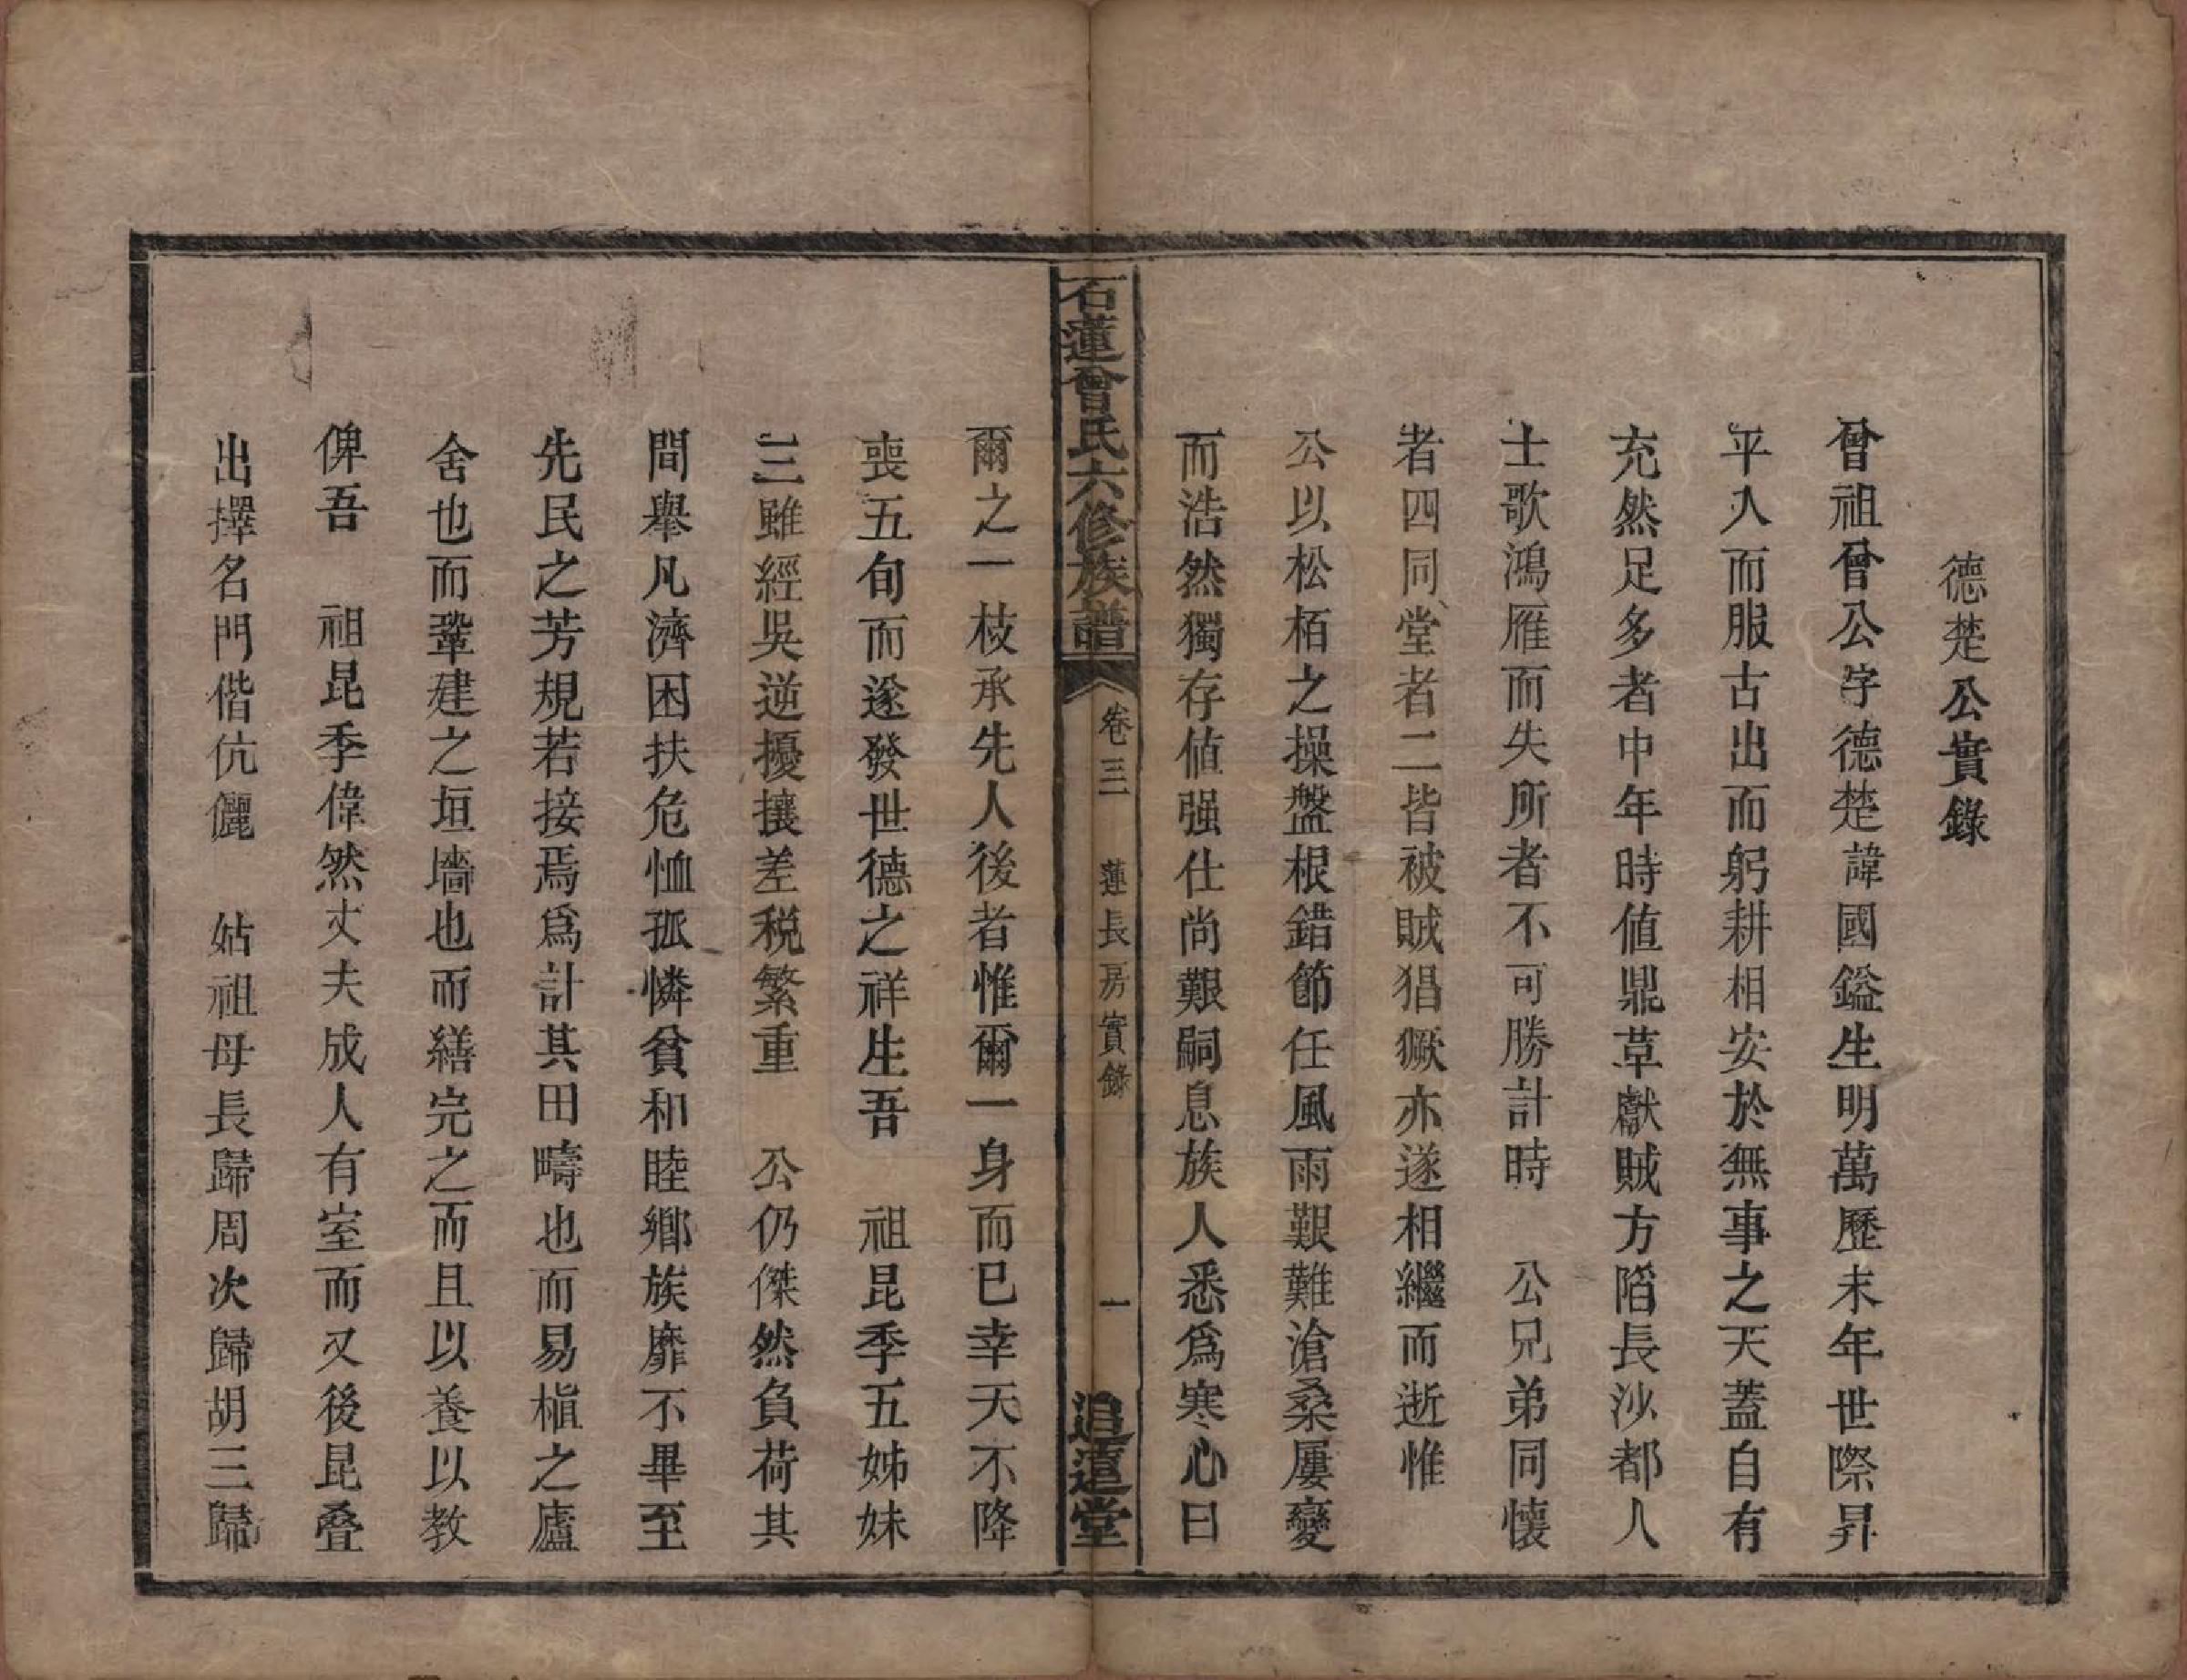 德楚公實錄
曾祖曾公字德楚諱國鎰生明萬歷末年世際昇
平人而服古出而躬耕相安於無事之天蓋自有
充然足多者中年時值鼎革獻賊方陷長沙都人
士歌鴻雁而失所者不可勝計時　公兄弟同懷
者四同堂者二皆被賊猖獗亦遂相繼而逝惟
公以松栢之操盤根錯節任風雨艱難滄桑屢變
而浩然獨存值强仕尚艱嗣息族人悉爲寒心曰
石蓮曾氏六修族譜　卷三　蓮長房實錄　一　追遠堂
爾之一枝承先人後者惟爾一身而已幸天不降
喪五旬而遂發世德之祥生吾　祖昆季五姊妹
三雖經吳逆擾攘差税繁重　公仍傑然負荷其
間舉凡濟困扶危恤孤憐貧和睦鄉族靡不畢至
先民之芳規若接焉爲計其田疇也而易植之廬
舍也而鞏建之垣墻也而繕完之而且以養以教
俾吾　祖昆季偉然丈夫成人有室而又後昆叠
出擇名門偕伉儷　姑祖母長歸周次歸胡三歸